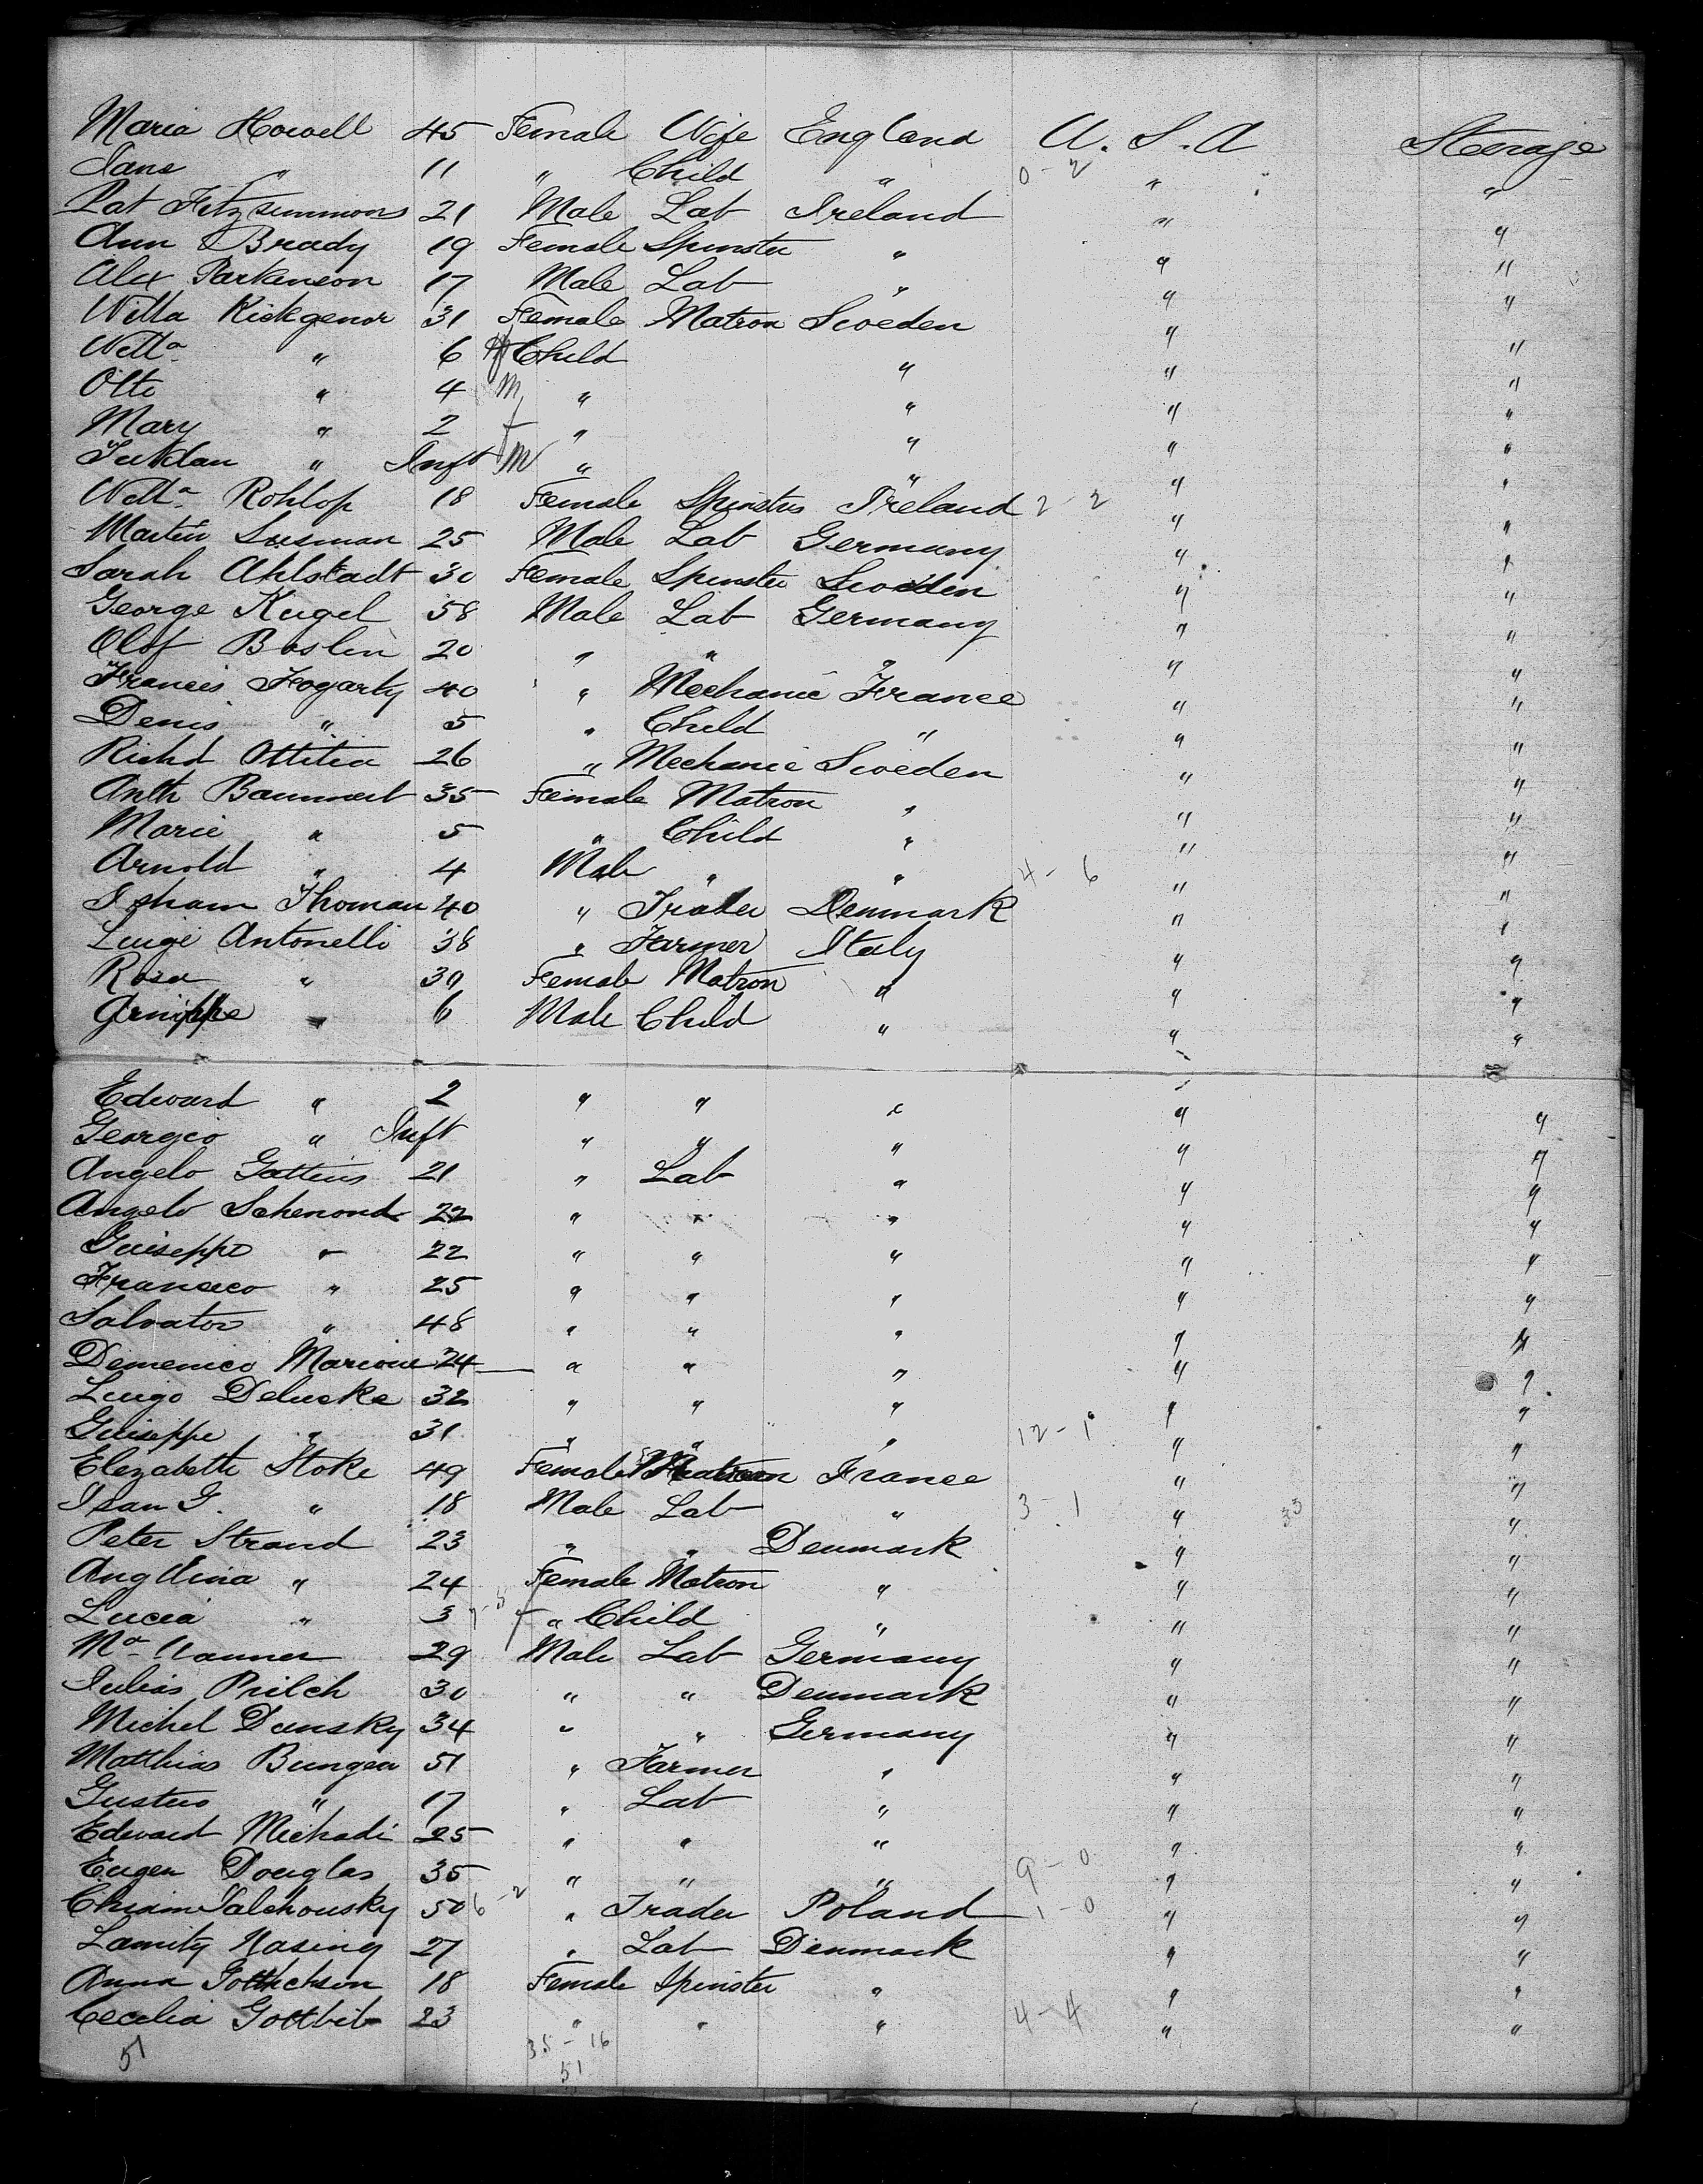 Maria Howell 45 Female Wife England U. S. A Steerage
Jane " 11 " Child " 0 - 2 " "
Pat Fitzsimmons 21 Male Lab Ireland " "
Ann Brady 19 Female Spinster " " "
Alex Parkenson 17 Male Lab " " "
Willa Rickgenor 31 Female Matron Sweden " "
Willa " 6 f Child " " "
Otto " 4 M " " " "
Mary " 2 f " " " "
" Inft M " " " "
Willa Rohlop 18 Female Spinster Ireland 2 - 2 " "
Martin Susman 25 Male Lab Germany " "
Sarah Ahlstadt 30 Female Spinster Sweden " "
George Kugel 58 Male Lab Germany " "
Olof Boslin 20 " " " " "
Francis Fogarty 40 " Mechanic France " "
Denis " 5 " Child " " "
Richd Ottitia 26 " Mechanic Sweden " "
Anth Baumert 35 Female Matron " " "
Marie " 5 " Child " " "
Arnold " 4 Male " " 4 - 6 " "
Isham Thoman 40 " Trader Denmark " "
Luigi Antonelli 38 " Farmer Italy " "
Rosa " 30 Female Matron " " "
" 6 Male Child " " "
Edward " 2 " " " " "
Georgio " Inft " " " " "
Angelo Gattins 21 " Lab " " "
Angelo Schenond 22 " " " " "
Guiseppe " 22 " " " " "
Francisco " 25 " " " " "
Salvator " 48 " " " " "
Demenico Marione 24 " " " " "
Luigo Deluske 32 " " " " "
Guiseppe " 31 " " " 12 - 1 " "
Elezabeth Stoke 49 Female Matron France " "
Jean G. " 18 Male Lab " 3 - 1 " 33 "
Peter Strand 23 " " Denmark " "
Angelina " 24 Female Matron " " "
Lucia " 3 f " Child " " "
Ma Nanner 29 Male Lab Germany " "
Julias Prilch 30 " " Denmark " "
Michel Dansky 34 " " Germany " "
Matthias Bungea 51 " Farmer " " "
Gustus " 17 " Lab " " "
Edward Michadi 25 " " " " "
Eugen Douglas 35 " " " 9 - 0 " "
Chaim Talchousky 50 6 - 2 " Trader Poland 1 - 0 " "
Lamity Nasing 27 " Lab Denmark " "
Anna 18 Female Spinster " " "
Cecelia Gottbit 23 " " " 4 - 4 " "
51 35 - 16
51